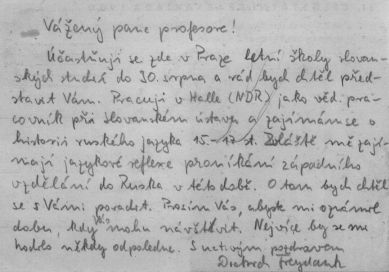 Vážený pane profesore!
Účastňuji se zde v Praze letní školy slovan-
ských studií do 30. srpna a rád bych chtěl před-
stavit Vám. Pracuji v Halle (NDR) jako věd. pra-
covník při slovanském ústavu a zajímám se o
historii ruského jazyka 15.-17 st. Zvláště mě zají-
mají jazykové reflexe pronikání západního
vzdělání do Ruska v této době. O tom bych chtěl
se s Vámi poradit. Prosím Vás, abyste mi oznámil
dobu, kdy Vás mohu navštívit. Nejvíce by se mi
hodilo někdy odpoledne. S uctivým pozdravem
Dietrich Freydank